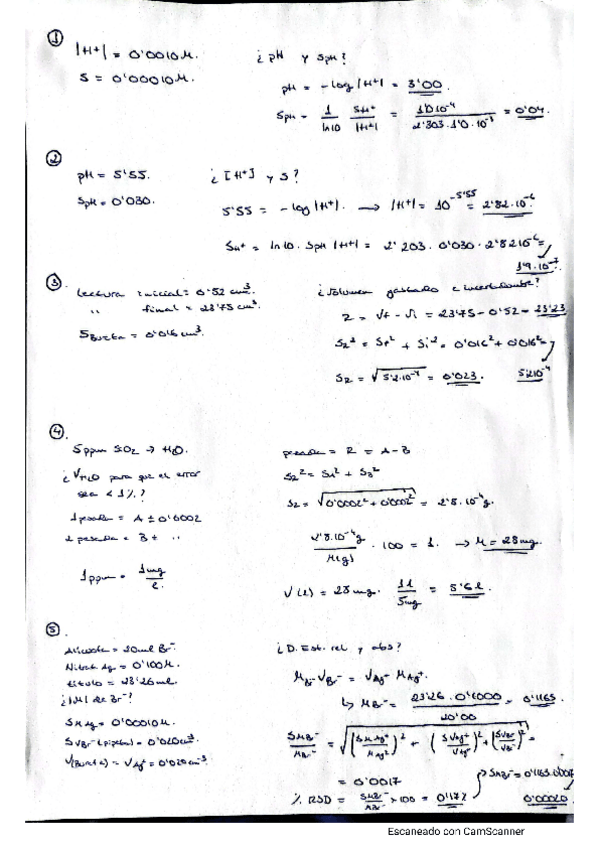 1
|H+| = 0'0010M.
S = 0'00010M.
¿pH y SpH?
pH = -log|H+| = 3'00
SpH = 1/ln10 SH+/|H+| = 1'0·10⁻⁴/2'303·1'0·10⁻³ = 0'04.
2
pH = 5'55.
SpH = 0'030.
¿[H+] y S?
5'55 = -log|H+|. → |H+| = 10⁻⁵'⁵⁵ = 2'82·10⁻⁶
SH+ = ln10. SpH |H+| = 2'203·0'030·2'82·10⁻⁶ =
1'9·10⁻⁷.
3.
Lectura inicial = 0'52 cm³.
,, final = 23'75 cm³.
SBureta = 0'016 cm³.
¿Volumen gastado e incertidumbre?
R = Vf - Vi = 23'75 - 0'52 = 23'23
SR² = Sf² + Si² = 0'016² + 0'016² =
5'2·10⁻⁴
SR = √5'2·10⁻⁴ = 0'023.
4.
5ppm SiO2 → H2O.
¿VH2O para que el error
sea < 1%?
1 pesada = A ± 0'0002
2 pesada = B ± ,,
1ppm = 1mg/l.
pesada = R = A - B
SR² = SA² + SB²
SR = √0'0002² + 0'0002² = 2'8·10⁻⁴g.
2'8·10⁻⁴g/M(g) · 100 = 1. → M = 28mg.
V(l) = 28mg · 1l/5mg = 5'6l.
5.
Alícuota = 20ml Br⁻.
Nitrat Ag = 0'100M.
título = 23'26ml.
¿|M| de Br⁻?
SMAg = 0'00010M.
SVBr⁻(pipeta) = 0'020cm³.
V(Bureta) = VAg+ = 0'020cm³
¿D. Est. rel y abs?
MBr⁻ VBr⁻ = VAg+ MAg+.
↳ MBr⁻ = 23'26·0'1000/20'00 = 0'1163.
SMBr⁻/MBr⁻ = √(SMAg+/MAg+)² + (SVAg+/VAg+)² + (SVBr⁻/VBr⁻)² =
= 0'0017
SMBr⁻ = 0'1163·0'0017
% RSD = SMBr⁻/MBr⁻ × 100 = 0'17%
0'00020
Escaneado con CamScanner